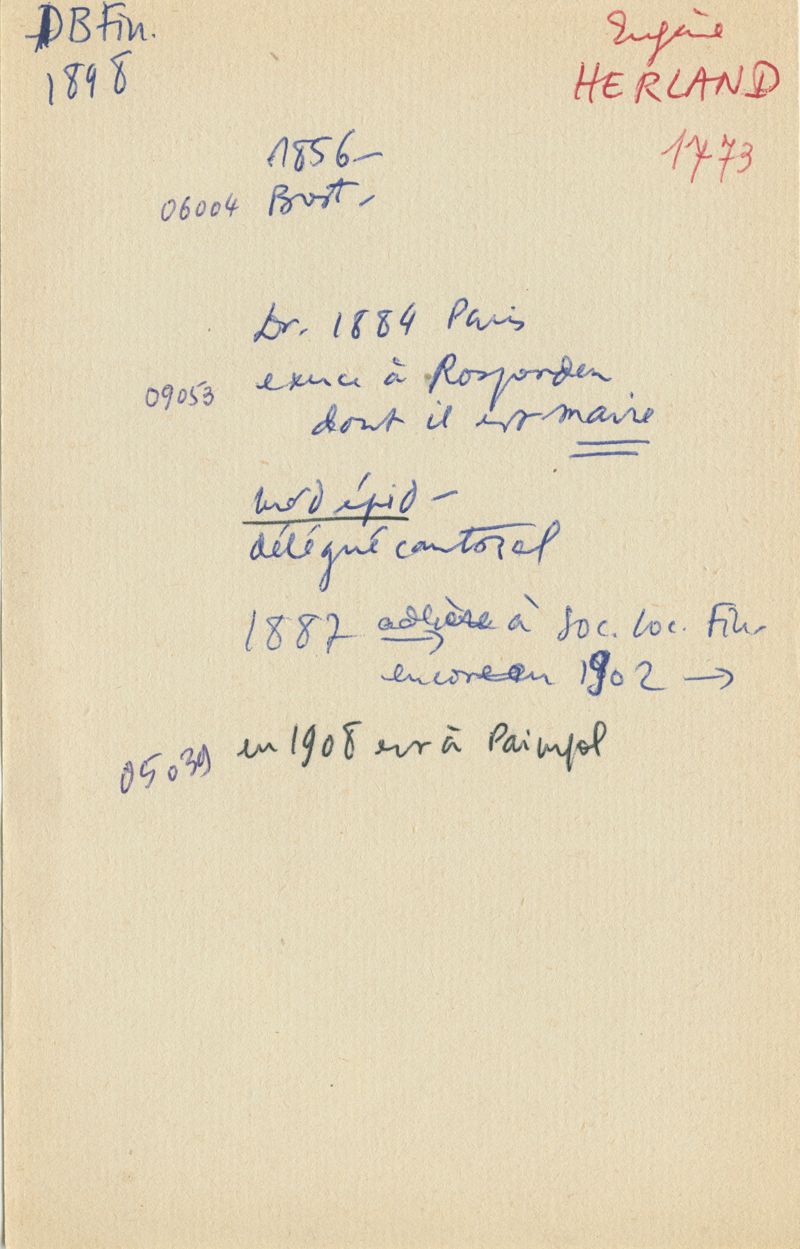 DBFin.
1898
Eugène
HERLAND
1773
1856-
06004 Brest -
Dr. 1884 Paris
09053 exerce à Rosporden
dont il est maire
méd épid -
délégué cantonal
1887 adhère à Soc. loc. Fin.
encore en 1902 →
05039 en 1908 est à Paimpol